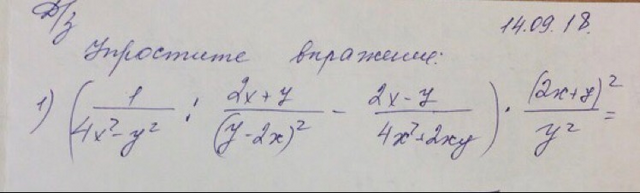 Д/з
14.09.18.
Упростите выражение:
1) (1/(4x²-y²) : (2x+y)/(y-2x)² - (2x-y)/(4x²+2xy)) · (2x+y)²/y² =